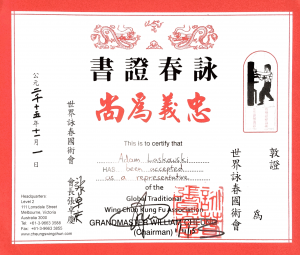 詠春證書
忠義為尚
This is to certify that
Adam Laskowski
HAS been accepted
us a representative
of the
Global Traditional
Wing Chun Kung Fu Association
GRANDMASTER WILLIAM CHEUNG
(Chairman)
敦證
為
世界詠春國術會
世界詠春國術會
會長張
公元二〇十五年十一月一日
Headquarters:
Level 2
111 Lonsdale Street
Melbourne, Victoria
Australia 3000
Tel: +61-3-9663 3588
Fax: +61-3-9663 3855
www.cheungswingchun.com